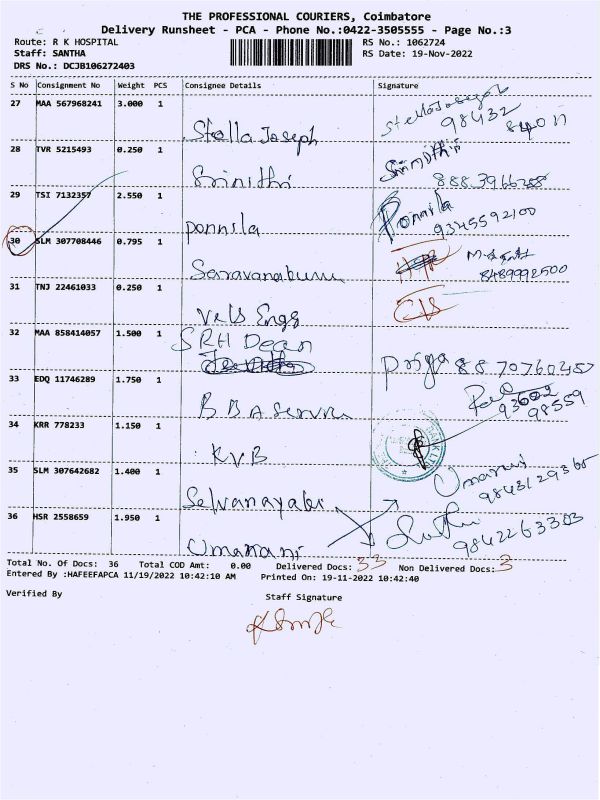 THE PROFESSIONAL COURIERS, Coimbatore
Delivery Runsheet - PCA - Phone No.:0422-3505555 - Page No.:3
Route: R K HOSPITAL RS No.: 1062724
Staff: SANTHA RS Date: 19-Nov-2022
DRS No.: DCJB106272403
S No Consignment No Weight PCS Consignee Details Signature
27 MAA 568968241 3.000 1 Stella Joseph Stella Joseph
98432 84011
28 TVR 5215493 0.250 1 Srinithi Srinidhi
29 TSI 7132357 2.550 1 ponnila Ponnila
888 3966288
9345592100
30 SLM 307708446 0.795 1 Saravanabumu
8489992500
31 TNJ 22461033 0.250 1 Vels Engg C/S
32 MAA 858414057 1.500 1 SRH Dean Priya 8870760357
33 EDQ 11746289 1.750 1 BBA Servu
98559
34 KRR 778233 1.150 1 KVB
35 SLM 307642682 1.400 1 Selvanayaki
9843129365
36 HSR 2558659 1.950 1 Umarani
9842263303
Total No. Of Docs: 36 Total COD Amt: 0.00 Delivered Docs: 33 Non Delivered Docs: 3
Entered By :HAFEEFAPCA 11/19/2022 10:42:10 AM Printed On: 19-11-2022 10:42:40
Verified By Staff Signature